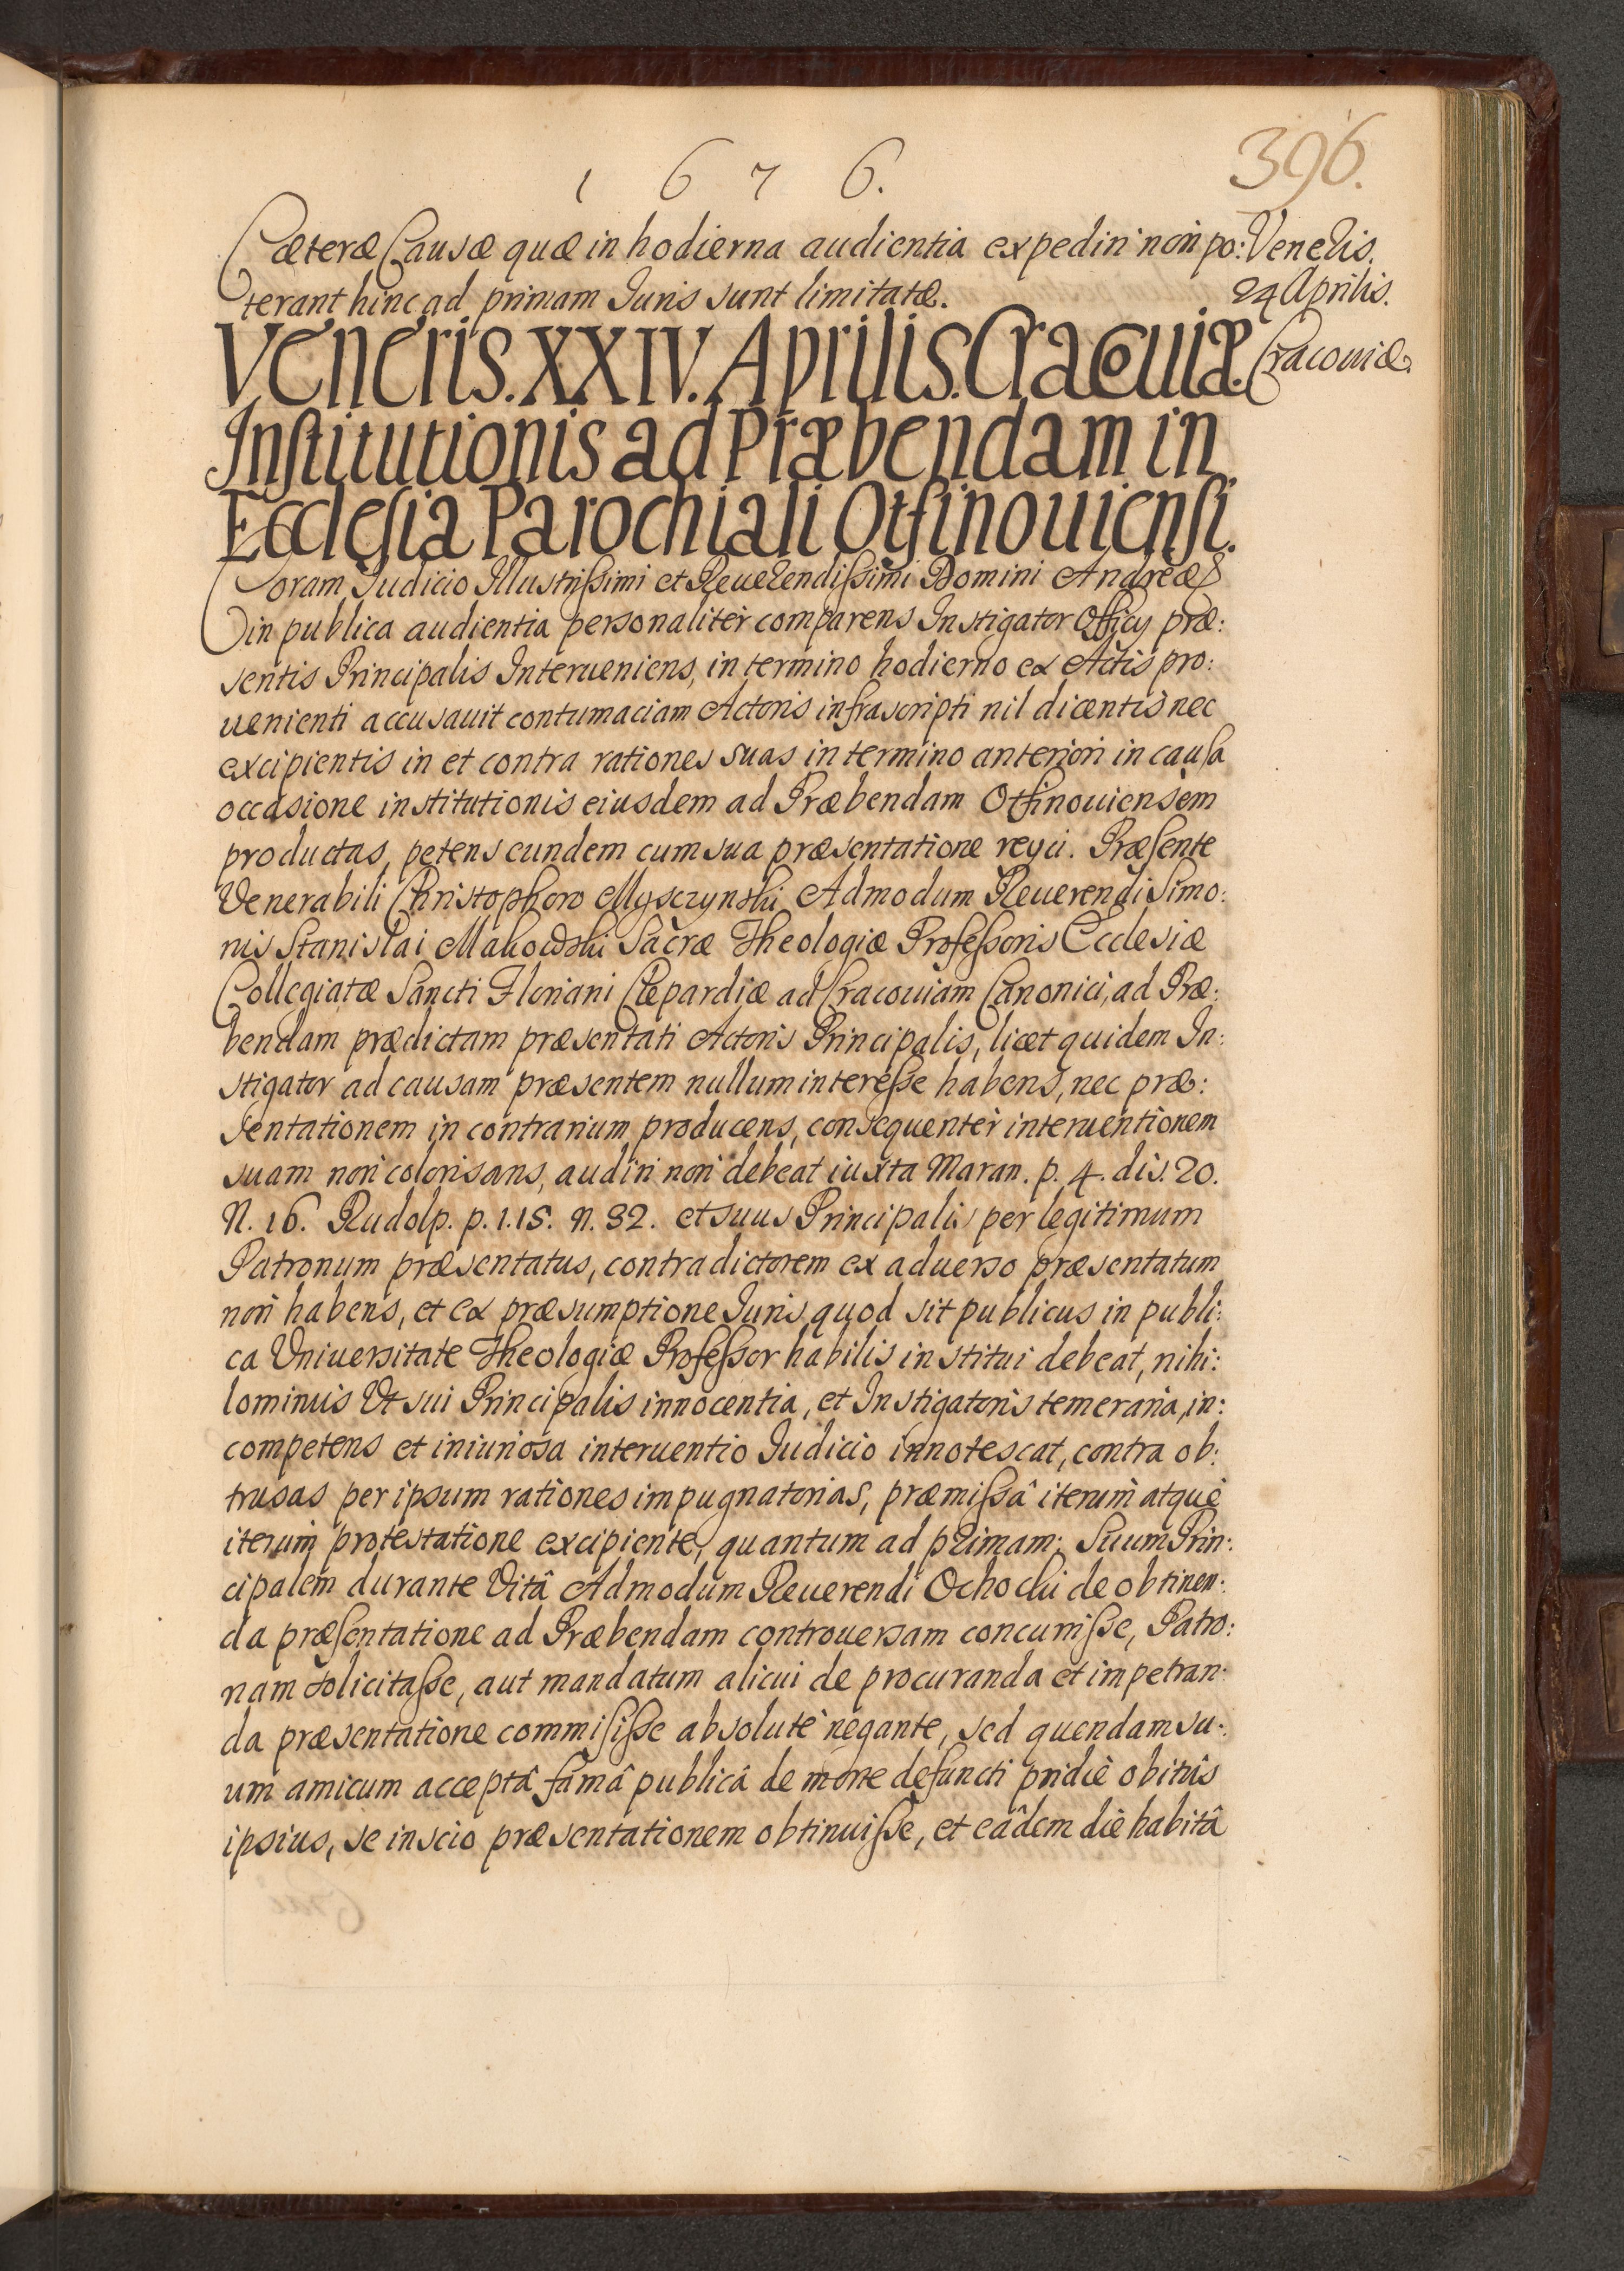 1676.
396.
Cæteræ Causæ quæ in hodierna audientia expediri non po:
terant hinc ad primam Iuris sunt limitatæ.
Veneris.
24 Aprilis.
Cracouiæ.
Veneris. XXIV. Aprilis. Cracouiæ.
Institutionis ad Præbendam in
Ecclesia Parochiali Otfinouiensi.
Coram Iudicio Illustrissimi et Reuerendissimi Domini Andreæ
in publica audientia personaliter comparens Instigator Officij præ:
sentis Principalis Interueniens, in termino hodierno ex Actis pro:
uenienti accusauit contumaciam Actoris infrascripti nil dicentis nec
excipientis in et contra rationes suas in termino anteriori in causa
occasione institutionis eiusdem ad Præbendam Otfinouiensem
productas, petens eundem cum sua præsentatione reijci. Præsente
Venerabili Christophoro Mysczynski Admodum Reuerendi Simo:
nis Stanislai Makowski Sacræ Theologiæ Professoris Ecclesiæ
Collegiatæ Sancti Floriani Clepardiæ ad Cracouiam Canonici, ad Præ:
bendam prædictam præsentati Actoris Principalis, licet quidem In:
stigator ad causam præsentem nullum interesse habens, nec præ:
sentationem in contrarium producens, consequenter interuentionem
suam non colorisans, audiri non debeat iuxta Maran. p. 4. dis. 20.
N. 16. Rudolp. p. 1. 15. n. 32. et suus Principalis per legitimum
Patronum præsentatus, contradictorem ex aduerso præsentatum
non habens, et ex præsumptione Iuris quod sit publicus in publi:
ca Vniuersitate Theologiæ Professor habilis institui debeat, nihi:
lominus Vt sui Principalis innocentia, et Instigatoris temeraria, in:
competens et iniuriosa interuentio Iudicio innotescat, contra ob:
trusas per ipsum rationes impugnatorias, præmissâ iterum atquè
iterum protestatione excipiente, quantum ad primam: Suum Prin:
cipalem durante Vitâ Admodum Reuerendi Ochocki de obtinen:
da præsentatione ad Præbendam controuersam concurrisse, Patro:
nam solicitasse, aut mandatum alicui de procuranda et impetran:
da præsentatione commisisse absolutè negante, sed quendam su:
um amicum acceptâ famâ publicâ de morte defuncti pridiè obitûs
ipsius, se inscio præsentationem obtinuisse, et eâdem die habitâ